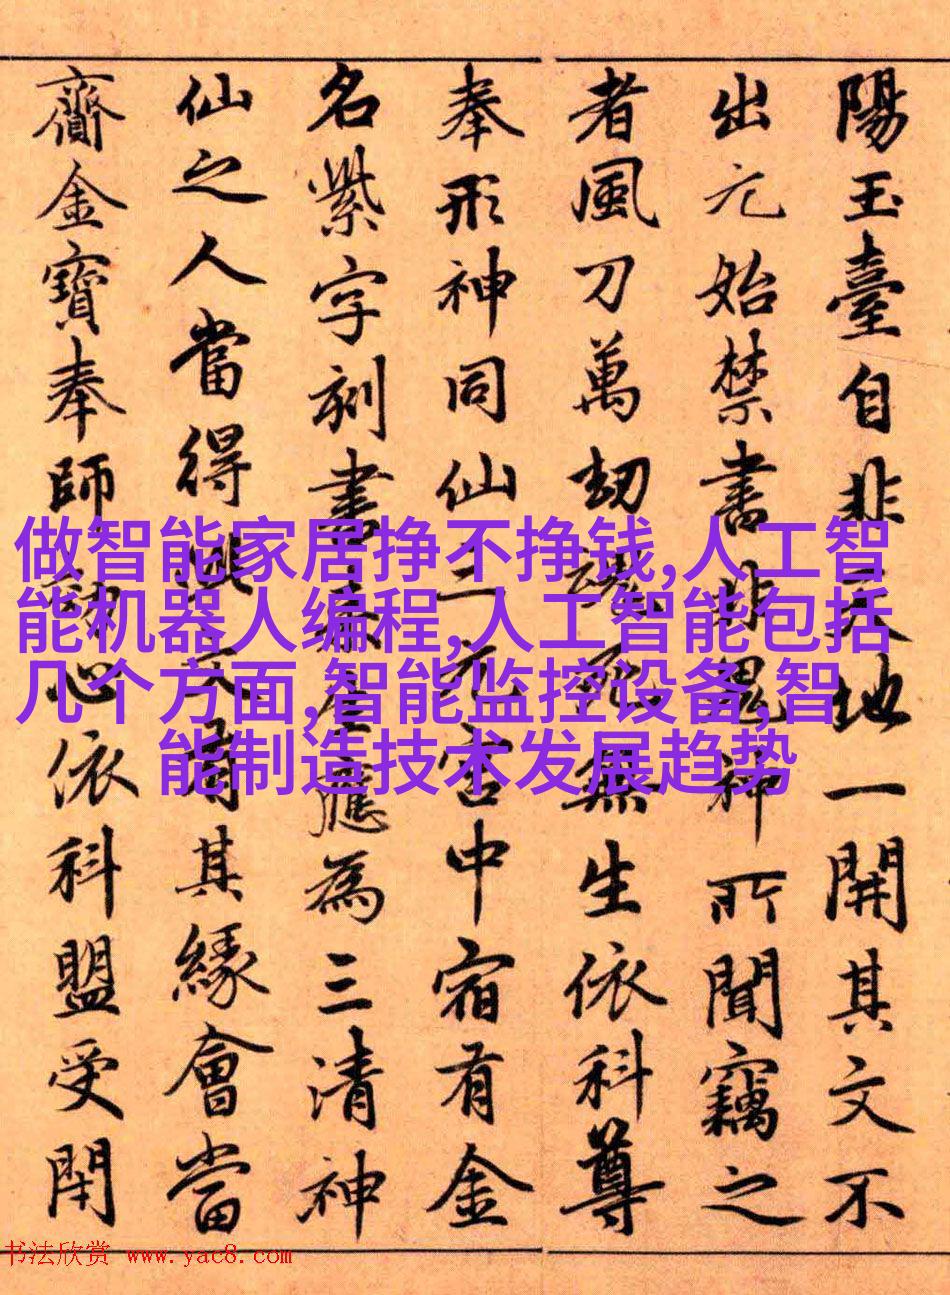 陽玉臺自非天地一開其文不
出元始禁書非鬼神所聞竊之
者風刀萬劫魂死無生依科尊
奉形神同仙三元宮中宿有金
名紫字刻書應為三清神
仙之人當得此文其緣會當
齎金寶奉師心依科盟受閇
做智能家居挣不挣钱,人工智
能机器人编程,人工智能包括
几个方面,智能监控设备,智
能制造技术发展趋势
书法欣赏 www.yac8.com